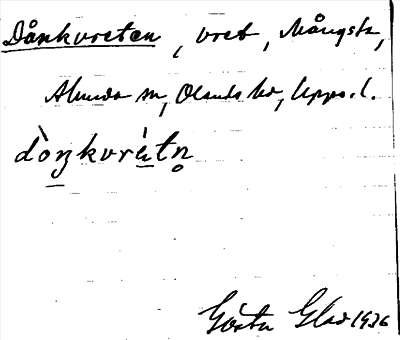 Dånkvreten, vret, Mångsta,
Alunda sn, Olands hd, Upps. l.
dòŋkvrètn̥
Gösta Glad 1936